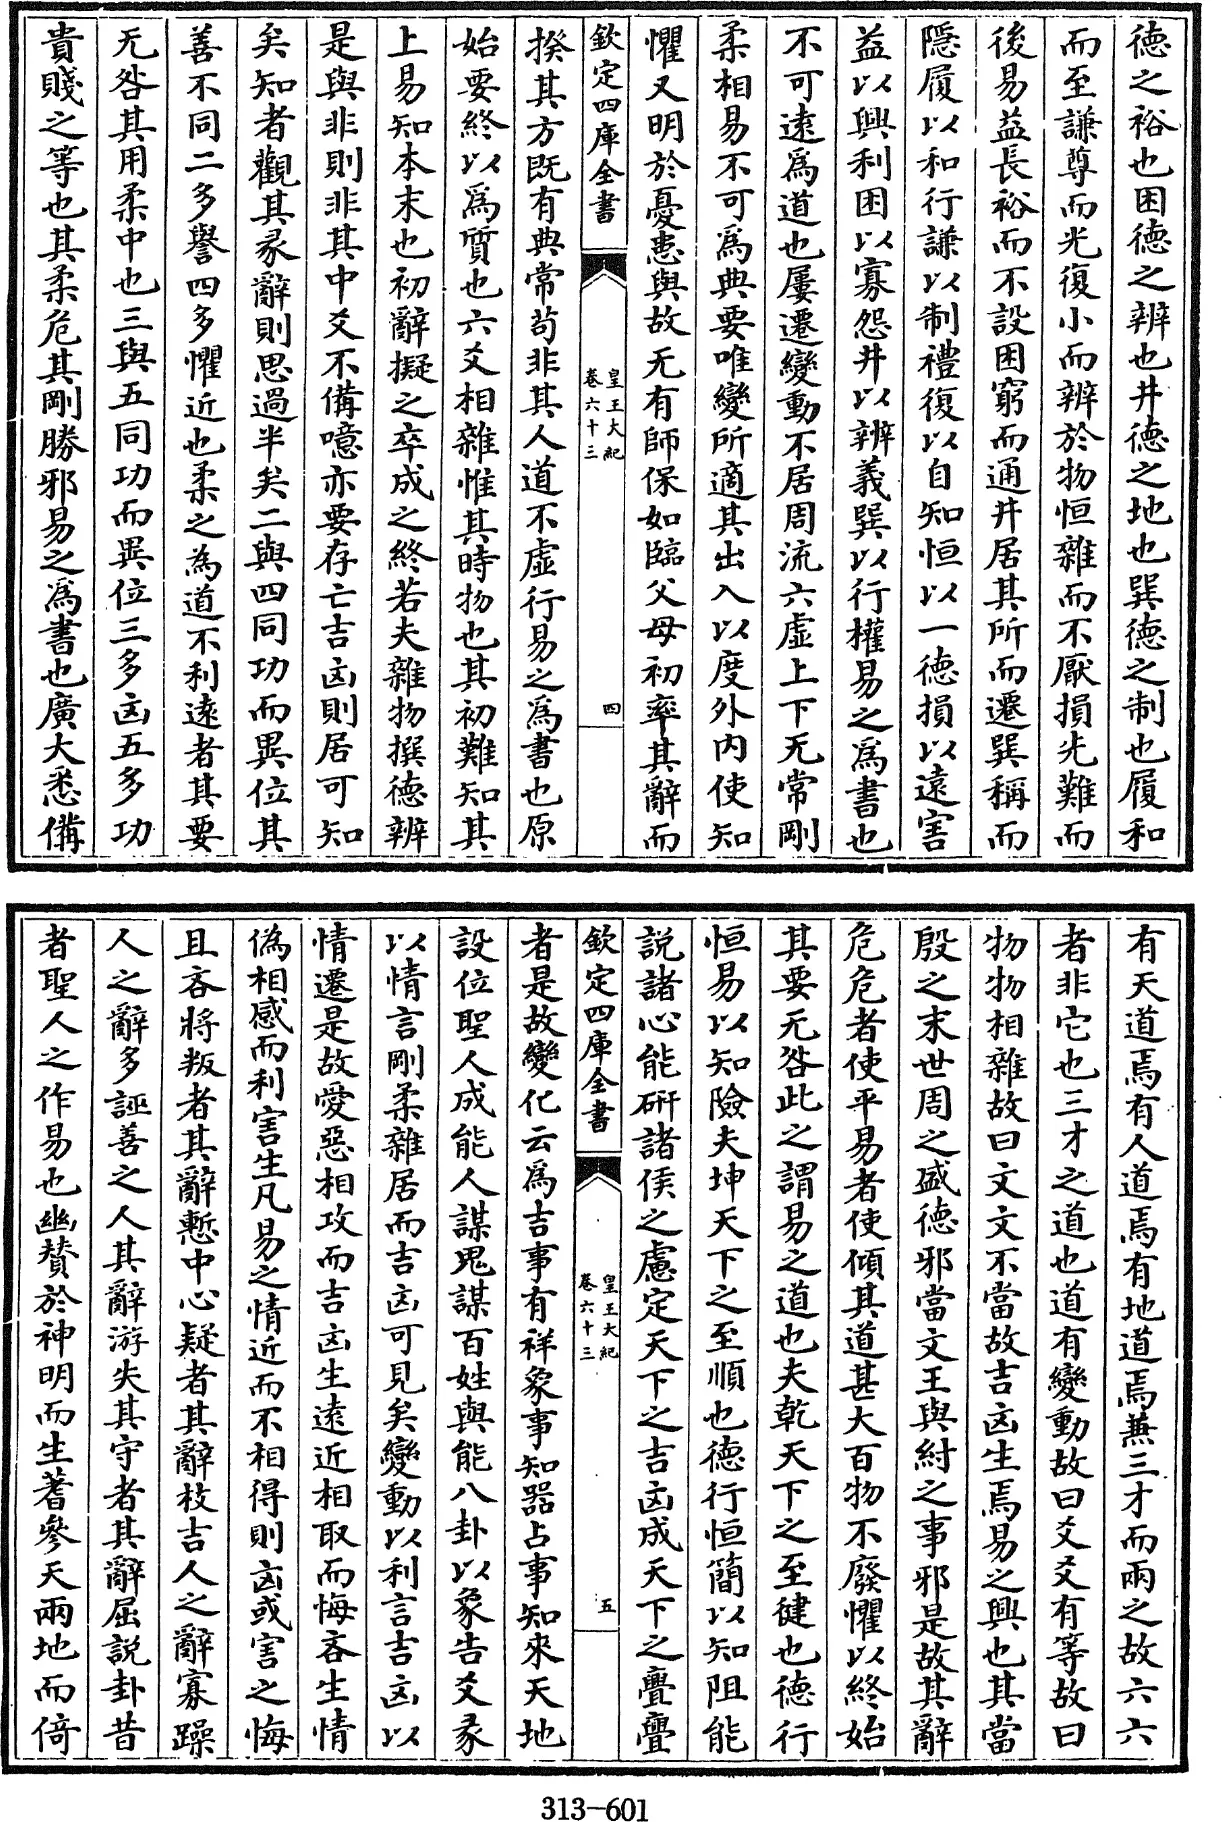 德之裕也困德之辨也井德之地也巽德之制也履和
而至謙尊而光復小而辨於物恒雜而不厭損先難而
後易益長裕而不設困窮而通井居其所而遷巽稱而
隱履以和行謙以制禮復以自知恒以一德損以遠害
益以興利困以寡怨井以辨義巽以行權易之為書也
不可遠為道也屢遷變動不居周流六虛上下无常剛
柔相易不可為典要唯變所適其出入以度外內使知
懼又明於憂患與故无有師保如臨父母初率其辭而
欽定四庫全書
皇王大紀
卷六十三
四
揆其方既有典常苟非其人道不虛行易之為書也原
始要終以為質也六爻相雜惟其時物也其初難知其
上易知本末也初辭擬之卒成之終若夫雜物撰德辨
是與非則非其中爻不備噫亦要存亡吉凶則居可知
矣知者觀其彖辭則思過半矣二與四同功而異位其
善不同二多譽四多懼近也柔之為道不利遠者其要
无咎其用柔中也三與五同功而異位三多凶五多功
貴賤之等也其柔危其剛勝邪易之為書也廣大悉備
有天道焉有人道焉有地道焉兼三才而兩之故六六
者非它也三才之道也道有變動故曰爻爻有等故曰
物物相雜故曰文文不當故吉凶生焉易之興也其當
殷之末世周之盛德邪當文王與紂之事邪是故其辭
危危者使平易者使傾其道甚大百物不廢懼以終始
其要无咎此之謂易之道也夫乾天下之至健也德行
恒易以知險夫坤天下之至順也德行恒簡以知阻能
說諸心能研諸侯之慮定天下之吉凶成天下之亹亹
欽定四庫全書
皇王大紀
卷六十三
五
者是故變化云為吉事有祥象事知器占事知來天地
設位聖人成能人謀鬼謀百姓與能八卦以象告爻彖
以情言剛柔雜居而吉凶可見矣變動以利言吉凶以
情遷是故愛惡相攻而吉凶生遠近相取而悔吝生情
偽相感而利害生凡易之情近而不相得則凶或害之悔
且吝將叛者其辭慙中心疑者其辭枝吉人之辭寡躁
人之辭多誣善之人其辭游失其守者其辭屈說卦昔
者聖人之作易也幽贊於神明而生蓍參天兩地而倚
313-601